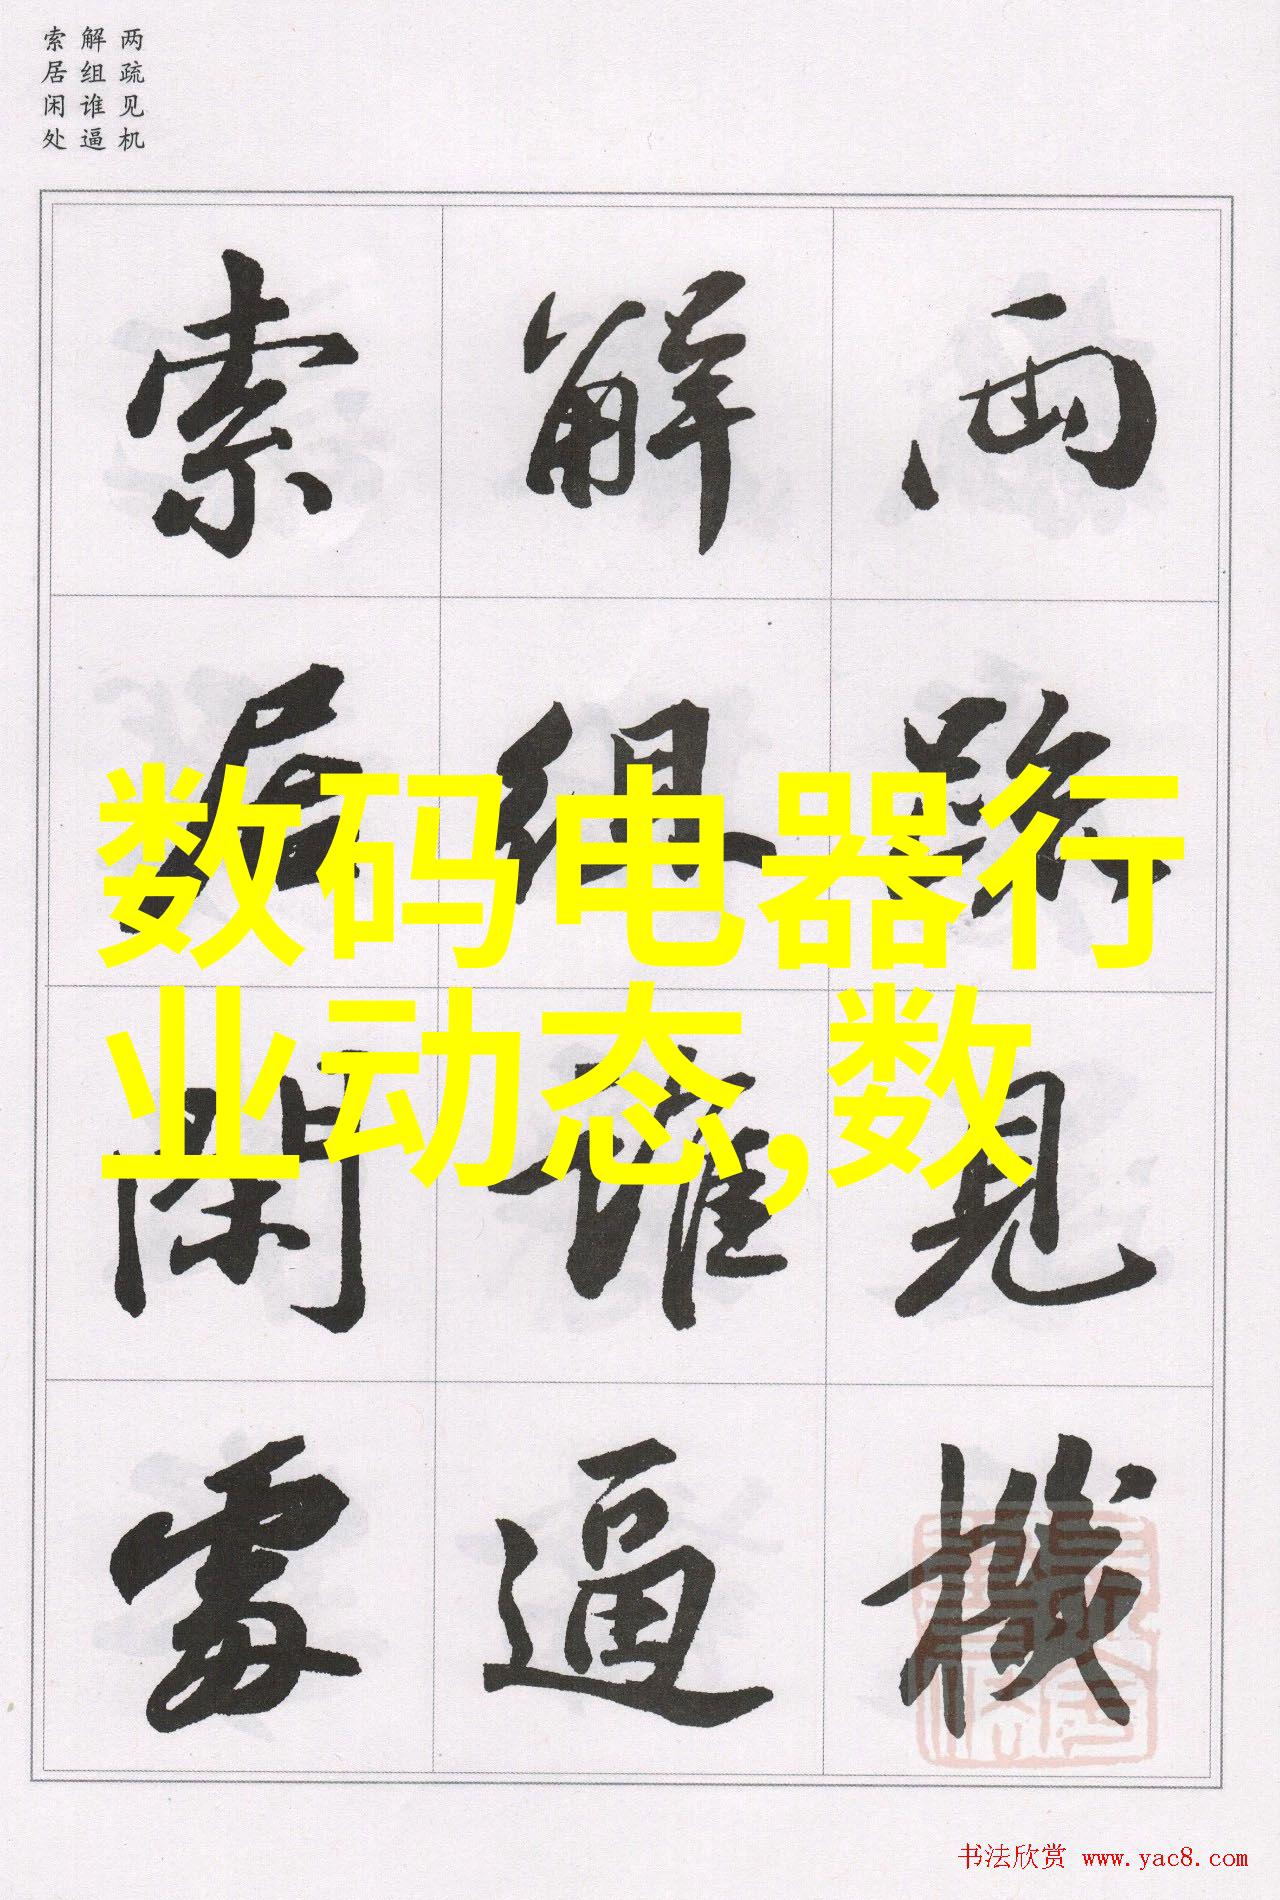 两疏见机
解组谁逼
索居闲处
两疏見機
解组谁逼
索居閑處
数码电器行
业动态,数
书法欣赏 www.yac8.com